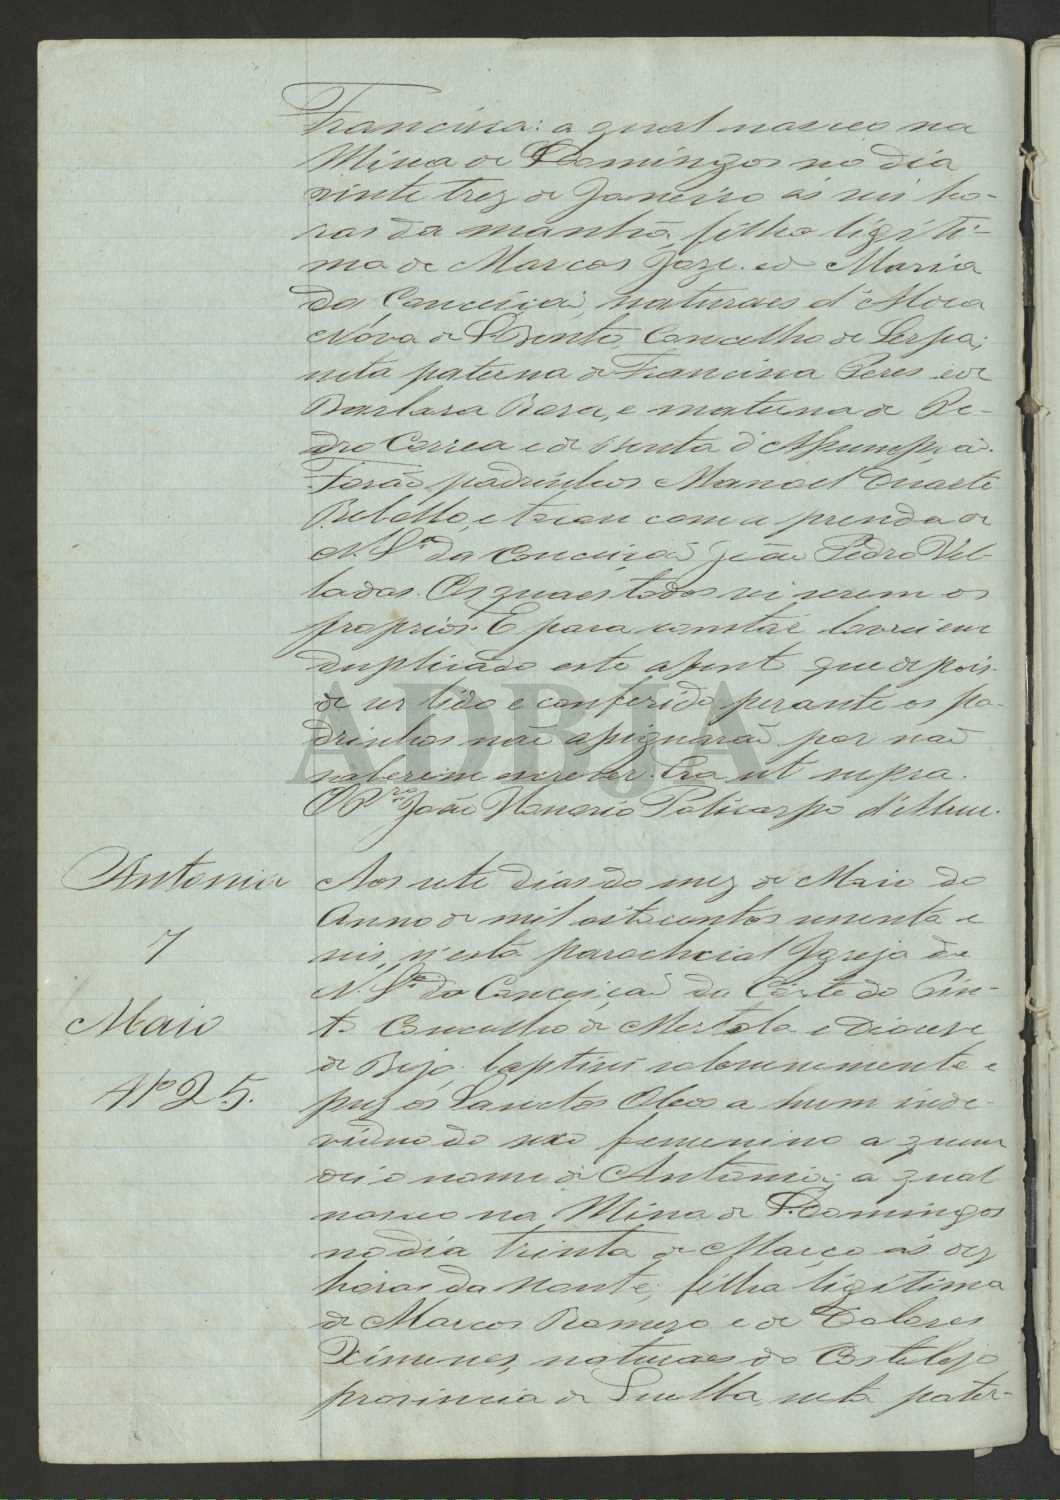 Francisca: a qual nasceo na
Mina de S. Domingos no dia
vinte trez de Janeiro ás seis ho-
ras da manhã, filha ligiti-
ma de Marcos Joze e de Maria
da Conceiçaõ, naturaes d'Aldea
Nóva de S. Bento, Concelho de Serpa;
neta paterna de Francisca Peres e de
Barbara Rosa, e materna de Pe-
dro Correa e de Benta d'Assumpçaõ.
Foraõ padrinhos Manoel Duarte
Rebello, e tocou com a prenda de
N. Sra. da Conceiçaõ Joaõ Pedro Vel-
ladas. Os quaes todos sei serem os
proprios. E para constár lavrei em
duplicado este assento que depois
de ser lido e conferido perante os pa-
drinhos naõ assignaraõ por naõ
saberem escrever. Era ut supra.
O Pre. Joaõ Honorio Policarpo
Antonia
7
Maio
Nº 25.
Aos sete dias do mez de Maio do
Anno de mil oito centos secenta e
seis, n'esta parochial Igreja de
N. Sra. da Conceiçaõ da Côrte do Pin-
to Concelho de Mertola e Diocese
de Beja baptizei solemnemente e
puz os Sanctos Oleos a hum inde-
viduo do sexo femenino a quem
dei o nome de Antonia; a qual
nasceo na Mina de S. Domingos
no dia trinta de Março ás dez
horas da noute; filha ligitima
de Marcos Romero e de Dolores
Ximenes, naturaes do Castelejo
provincia de Huelba, neta pater-
ADBJA